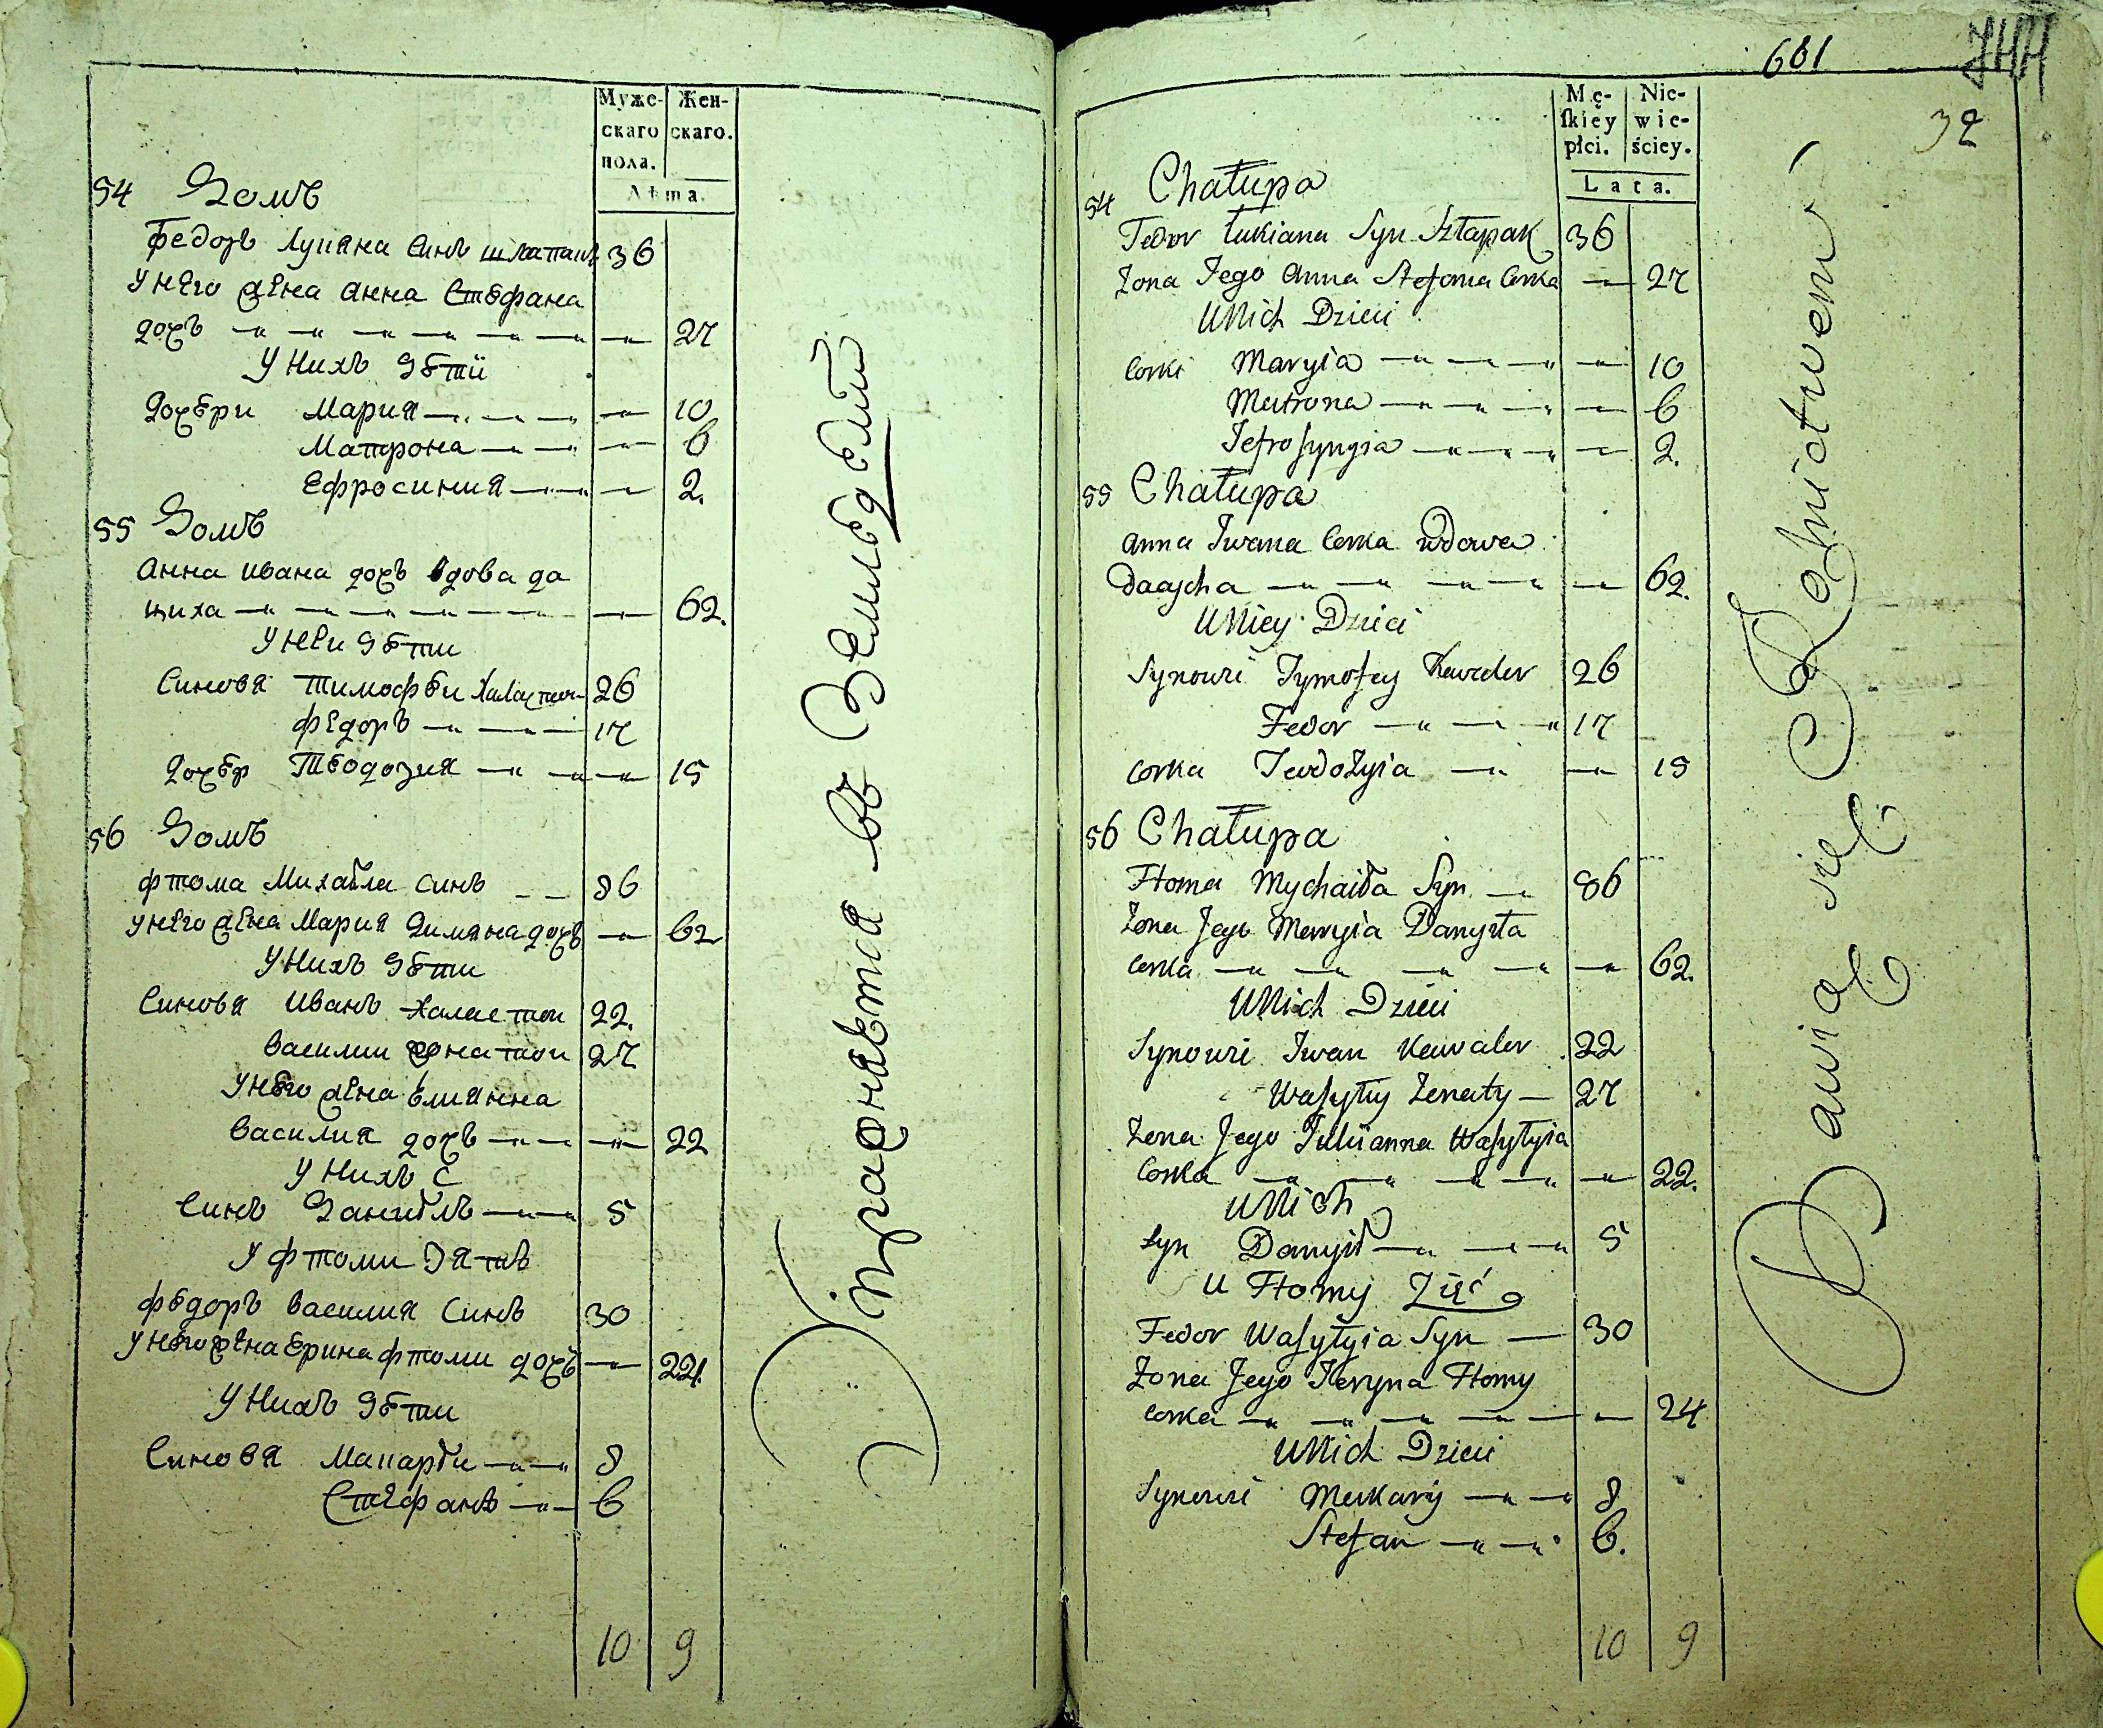 Муже-
скаго
пола.
Жен-
скаго.
Лѣта.
54 Домъ
Федоръ Лукяна Синъ шлапакъ 36
У нѣго жѣна Анна Стефана
дочъ 27
У Нихъ Дѣтїи
Дочери Мария 10
Матрона 6
Ефросиния 2.
55 Домъ
Анна Ивана дочъ вдова да
щиха 62.
У нѣи Дѣти
Синовя Тимофѣи Халастои 26
Фѣдоръ 17
Дочер Теодозия 15
56 Домъ
Фтома Михаила Синъ 86
У нѣго жѣна Мария дочъ 62
У Нихъ Дѣти
Синовя Иванъ Халастои 22.
Василии жонатои 27
У нѣго жѣна
Василия дочъ 22
У Нихъ
Синъ Данииlъ 5
У Фтоми Зять
Фѣдоръ Василия Синъ 30
У нѣго жѣна Ерина Фтоми дочъ 24.
У Нихъ Дѣти
Синовя Макарѣи 8
Стефанъ 6
10 9
Упражняется въ Земледелїи
661
32
Mę-
ſkiey
płci.
Nie-
wie-
ściey.
Lata.
54 Chałupa
Fedor Łukiana Syn Szłapak 36
Żona Jego Anna Stefana Corka 27
U Nich Dzieci
Corki Maryia 10
Matrona 6
Jefrosynyia 2.
55 Chałupa
Anna Iwana Corka wdowa
62.
U Niey Dzieci
Synowi Tymofey Kawaler 26
Fedor 17
Corka Teodozyia 15
56 Chałupa
Ftoma Mychaiła Syn 86
Żona Jego Maryia Danyła
Corka 62.
U Nich Dzieci
Synowi Iwan Kawaler 22
Wasyły Żenaty 27
Żona Jego Juliianna Wasyłyia
Corka 22.
U Nich
Syn Danyił 5
U Ftomy Zięć
Fedor Wasyłyia Syn 30
Żona Jego Jeryna Ftomy
Corka 24
U Nich Dzieci
Synowi Makary 8
Stefan 6.
10 9
Bawią się Rolnictwem